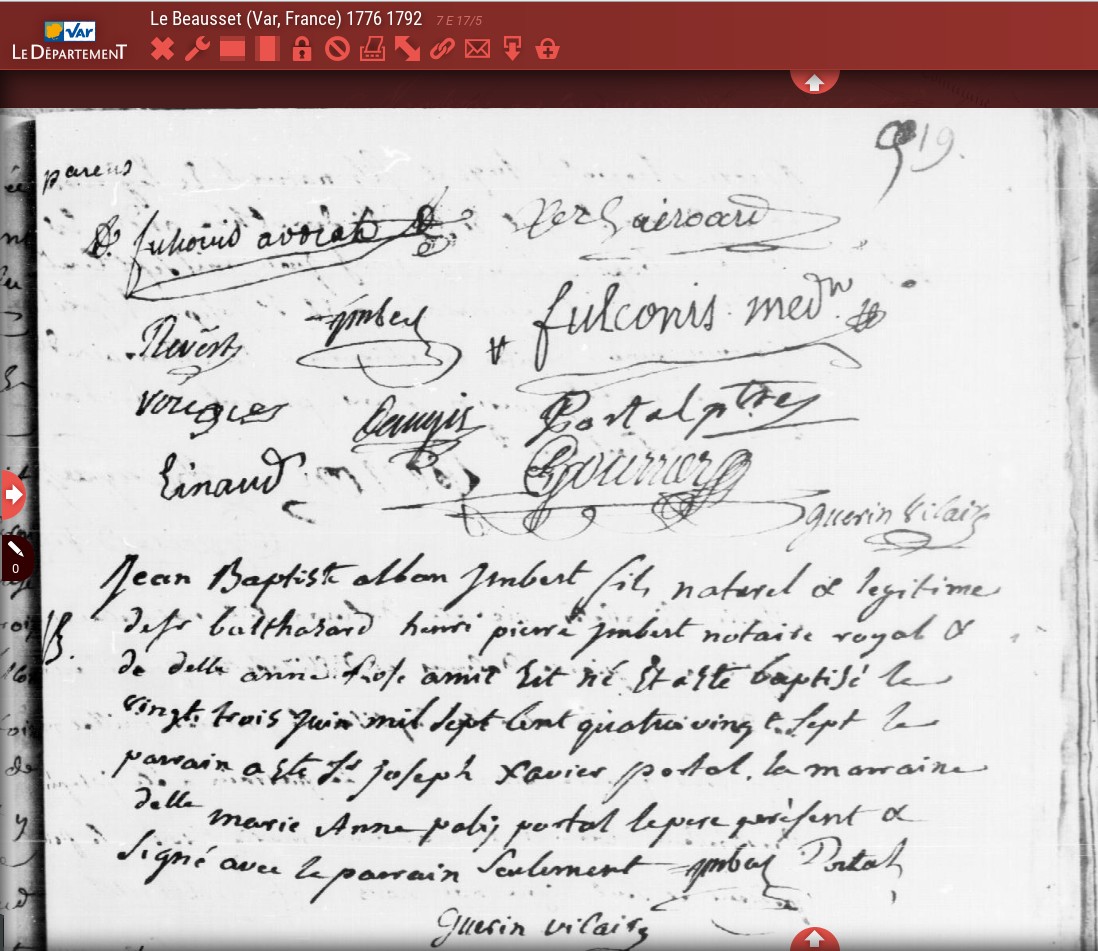 Le Beausset (Var, France) 1776 1792 7 E 17/5
VAR
LE DÉPARTEMENT
919.
parens
avocat
fulconis med
Revest
Imbert
Portal ptre
Einaud
Gourrier
guerin vicaire
0
Jean Baptiste alban Imbert fils naturel & legitime
de sr balthasard henri pierre imbert notaire royal &
B.
de delle anne rose amic Est né Et a eté baptisé le
vingt trois juin mil sept Cent quatrevingt sept le
parrain a eté sr joseph xavier portal, la marraine
delle marie Anne portal le pere présent &
signé avec le parrain seulement Imbert Portal
Guerin vicaire